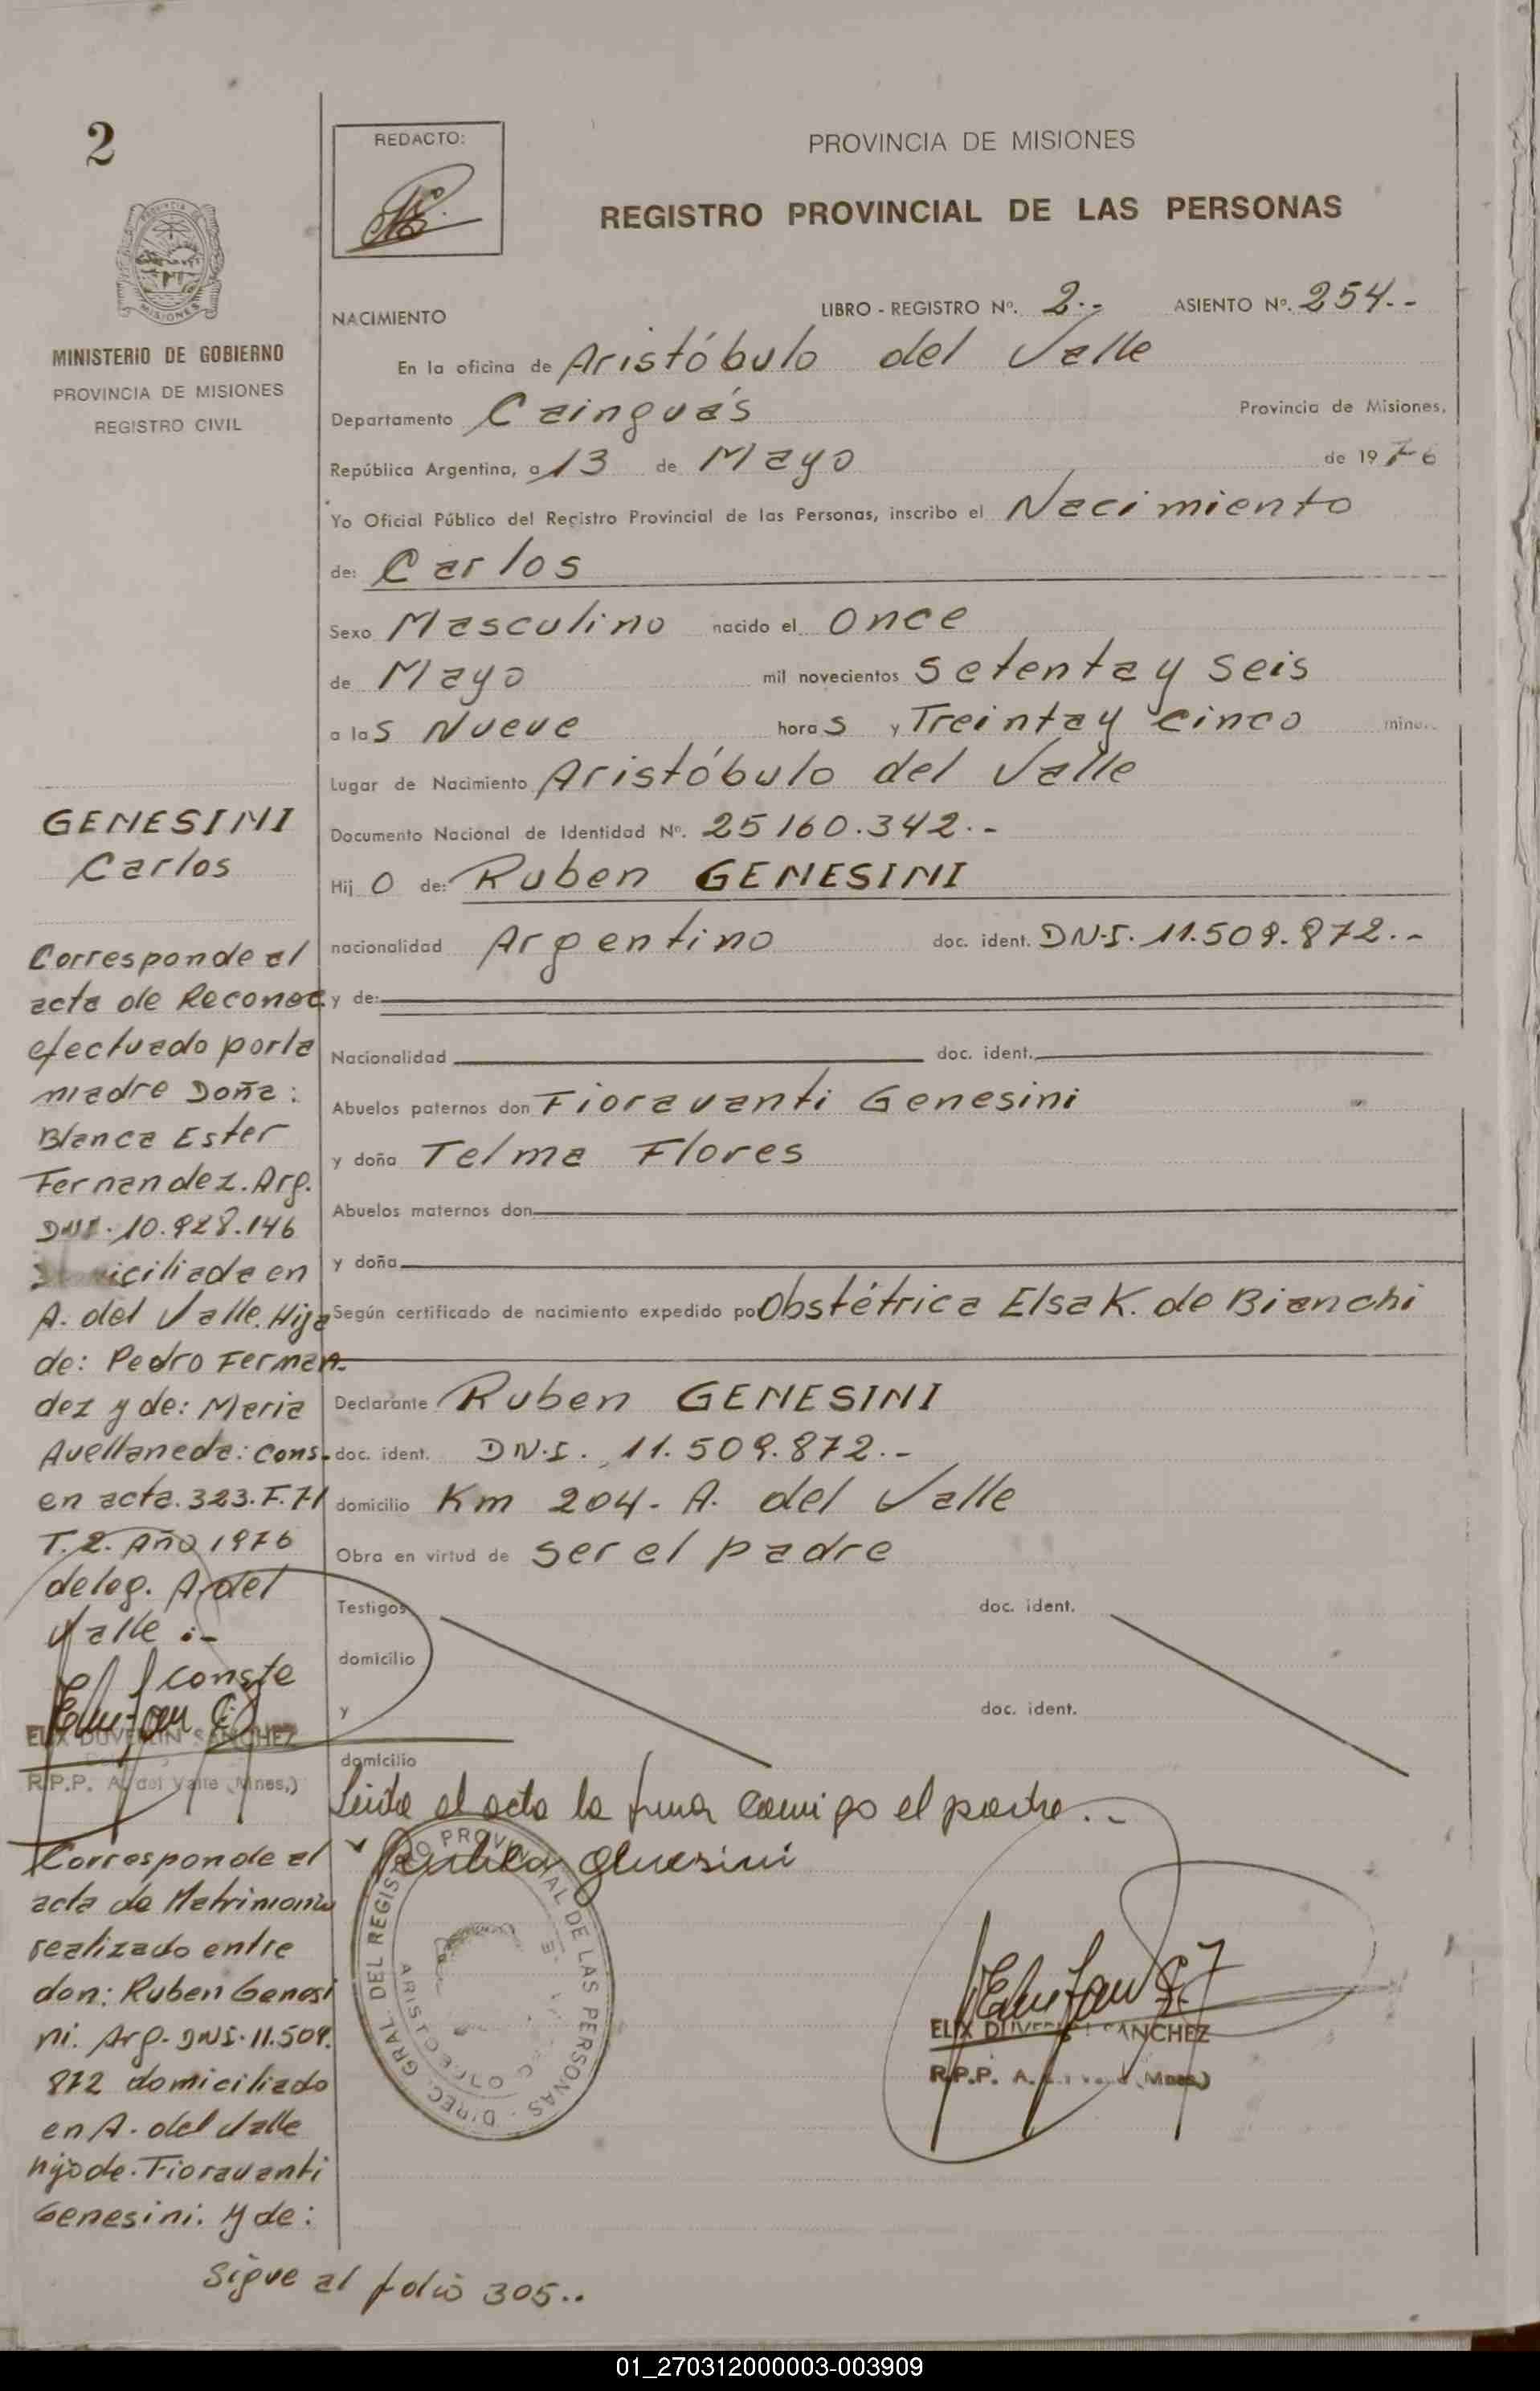 2
REDACTO:
PROVINCIA DE MISIONES
REGISTRO PROVINCIAL DE LAS PERSONAS
MINISTERIO DE GOBIERNO
PROVINCIA DE MISIONES
REGISTRO CIVIL
NACIMIENTO LIBRO - REGISTRO Nº. 2.- ASIENTO Nº. 254.-
En la oficina de Aristóbulo del Valle
Departamento Cainguás Provincia de Misiones,
República Argentina, a 13 de Mayo de 1976
Yo Oficial Público del Registro Provincial de las Personas, inscribo el Nacimiento
de: Carlos
Sexo Masculino nacido el Once
de Mayo mil novecientos Setenta y Seis
a las Nueve horas y Treinta y cinco
Lugar de Nacimiento Aristóbulo del Valle
Documento Nacional de Identidad Nº. 25160.342.-
Hijo de: Ruben GENESINI
nacionalidad Argentino doc. ident. DN.I. 11.509.872.-
y de:
Nacionalidad doc. ident.
Abuelos paternos don Fioravanti Genesini
y doña Telma Flores
Abuelos maternos don
y doña
Según certificado de nacimiento expedido por Obstétrica Elsa K. de Bianchi
Declarante Ruben GENESINI
doc. ident. DN.I. 11.509.872.-
domicilio Km 204- A. del Valle
Obra en virtud de ser el padre
Testigos doc. ident.
domicilio
y doc. ident.
domicilio
Leida el acta la firma conmigo el padre.-
Genesini
ELIX DUVERLIN SANCHEZ
R.P.P. A. del Valle (Mnes.)
DIREC. GRAL. DEL REGISTRO PROVINCIAL DE LAS PERSONAS
GENESINI
Carlos
Corresponde al
acta de Reconoc
efectuado por la
madre Doña:
Blanca Ester
Fernandez. Arg.
DNI. 10.928.146
Domiciliada en
A. del Valle. Hija
de: Pedro Fernan-
dez y de: Maria
Avellaneda: Cons-
en acta. 323. F. 71
T. 2. Año 1976
deleg. A. del
Valle .-
conste
ELIX DUVERLIN SANCHEZ
R.P.P. A. del Valle (Mnes.)
Corresponde al
acta de Matrimonio
realizado entre
don: Ruben Genesi
ni. Arg. DNI. 11.509.
872 domiciliado
en A. del Valle
hijo de. Fioravanti
Genesini. y de:
Sigue al folio 305..
01_270312000003-003909